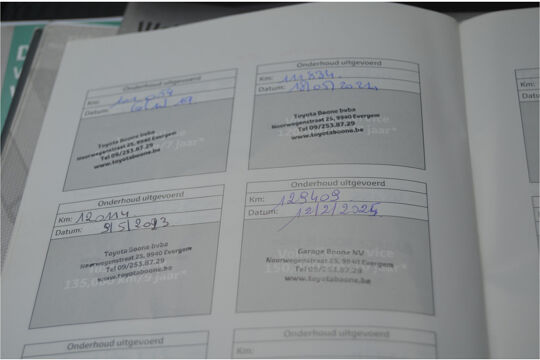 Onderhoud uitgevoerd
Km:
Datum:
Toyota Boone bvba
Noorwegenstraat 25, 9940 Evergem
Tel 09/253.87.29
www.toyotaboone.be
Onderhoud uitgevoerd
Km: 111834
Datum: 18/05/2021
Toyota Boone bvba
Noorwegenstraat 25, 9940 Evergem
Tel 09/253.87.29
www.toyotaboone.be
Onderhoud uitgevoerd
Km: 120114
Datum: 9/5/2023
Toyota Boone bvba
Noorwegenstraat 25, 9940 Evergem
Tel 09/253.87.29
www.toyotaboone.be
135,000 km/9 jaar*
Onderhoud uitgevoerd
Km: 129409
Datum: 12/2/2025
Garage Boone NV
Noorwegenstraat 25, 9940 Evergem
Tel 09/253.87.29
www.toyotaboone.be
Onderhoud uitgevoerd
Onderhoud uitgevoerd
Km: